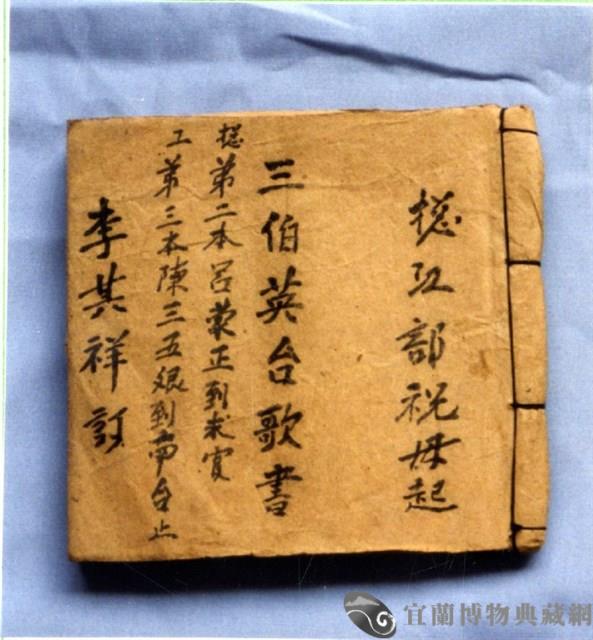 江部祝母起
三伯英台歌書
第二本呂蒙正到求
工第三本陳三五娘到台止
李其祥訂
宜蘭博物典藏網